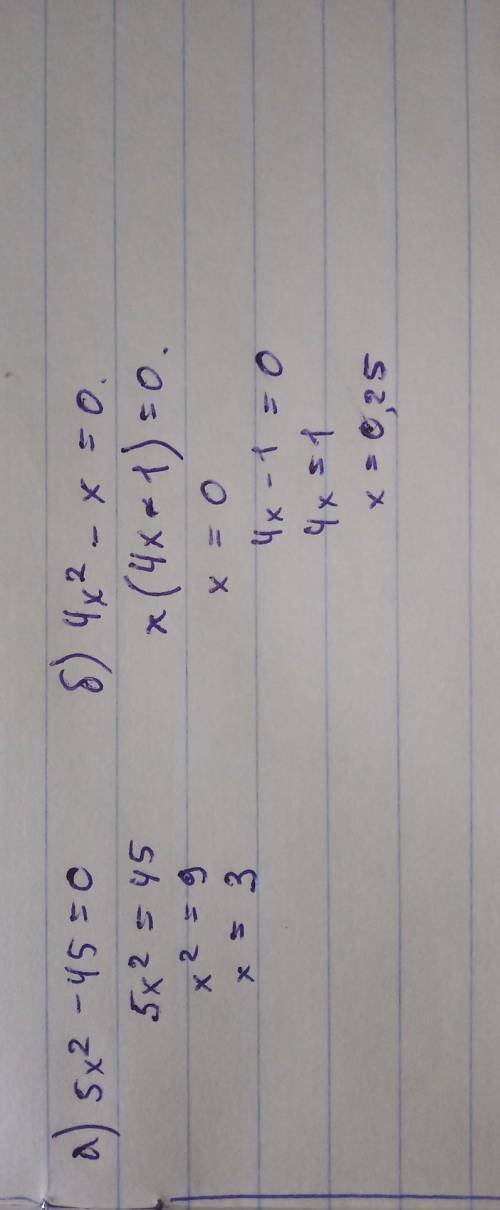 а) 5x² - 45 = 0
5x² = 45
x² = 9
x = 3
б) 4x² - x = 0.
x(4x - 1) = 0.
x = 0
4x - 1 = 0
4x = 1
x = 0,25